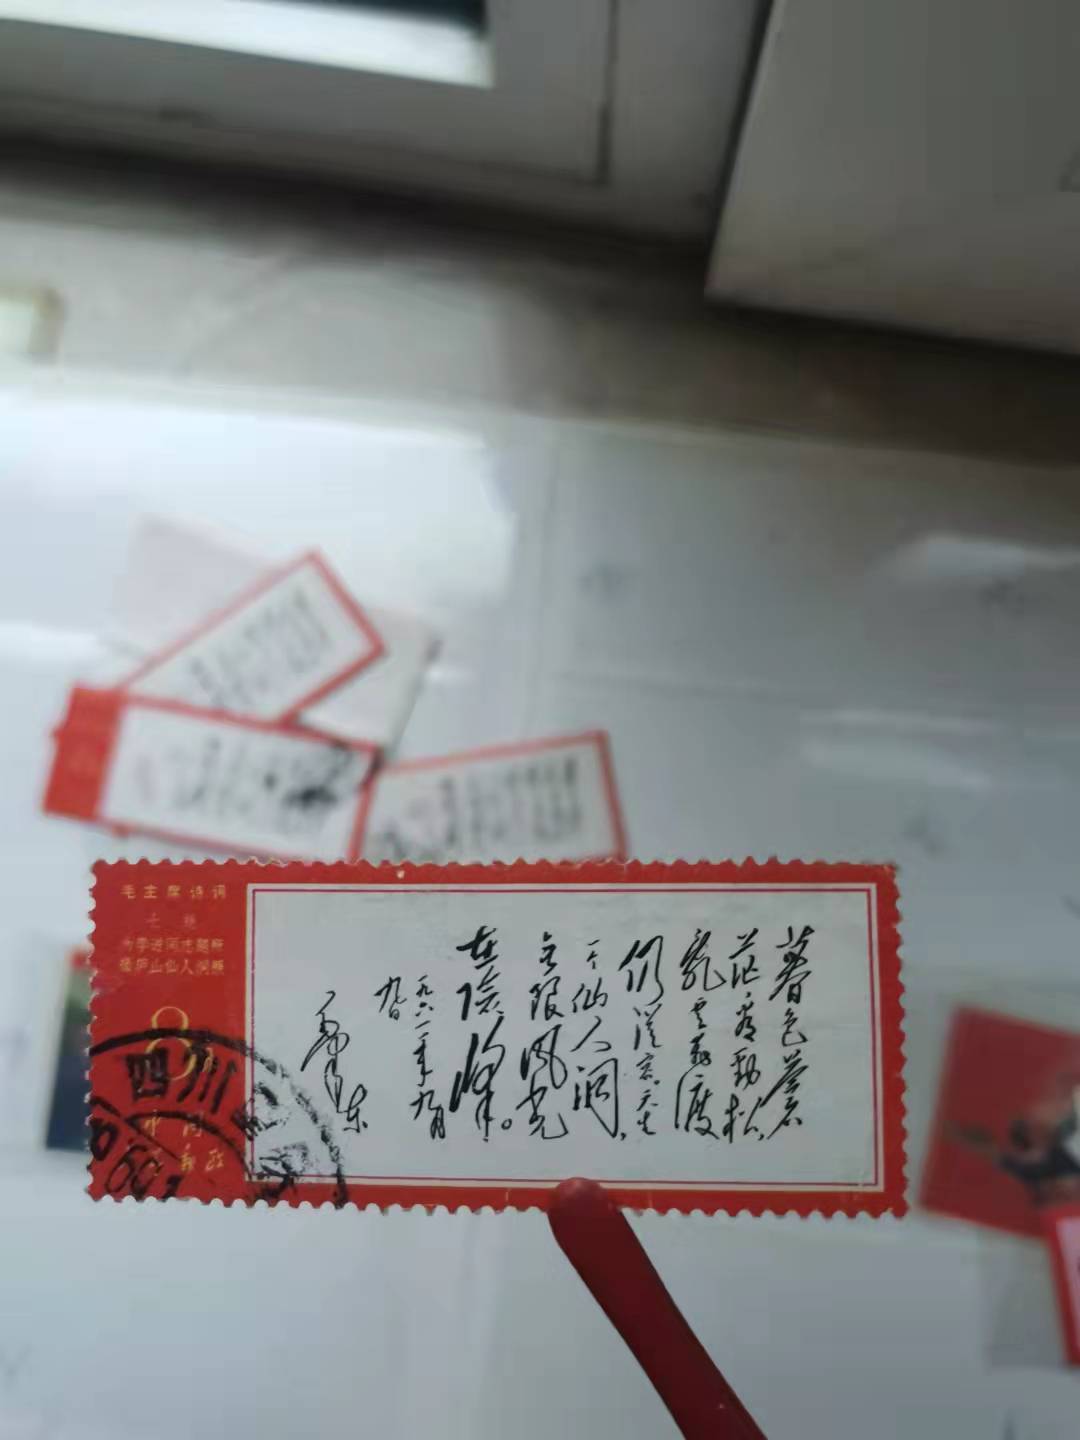 毛主席诗词
七绝
为李进同志题所
摄庐山仙人洞照
8
中国
人民邮政
四川
暮色苍
茫看劲松,
乱云飞渡
仍从容。天生
一个仙人洞,
无限风光
在险峰。
一九六一年九月
九日
毛泽东